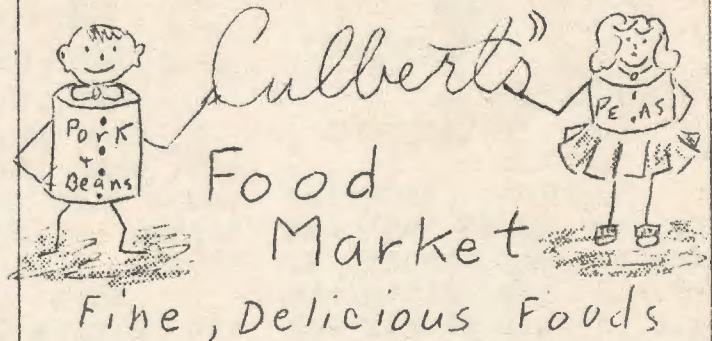 Culberts"
Pork
+
Beans
PE AS
Food
Market
Fine, Delicious Foods